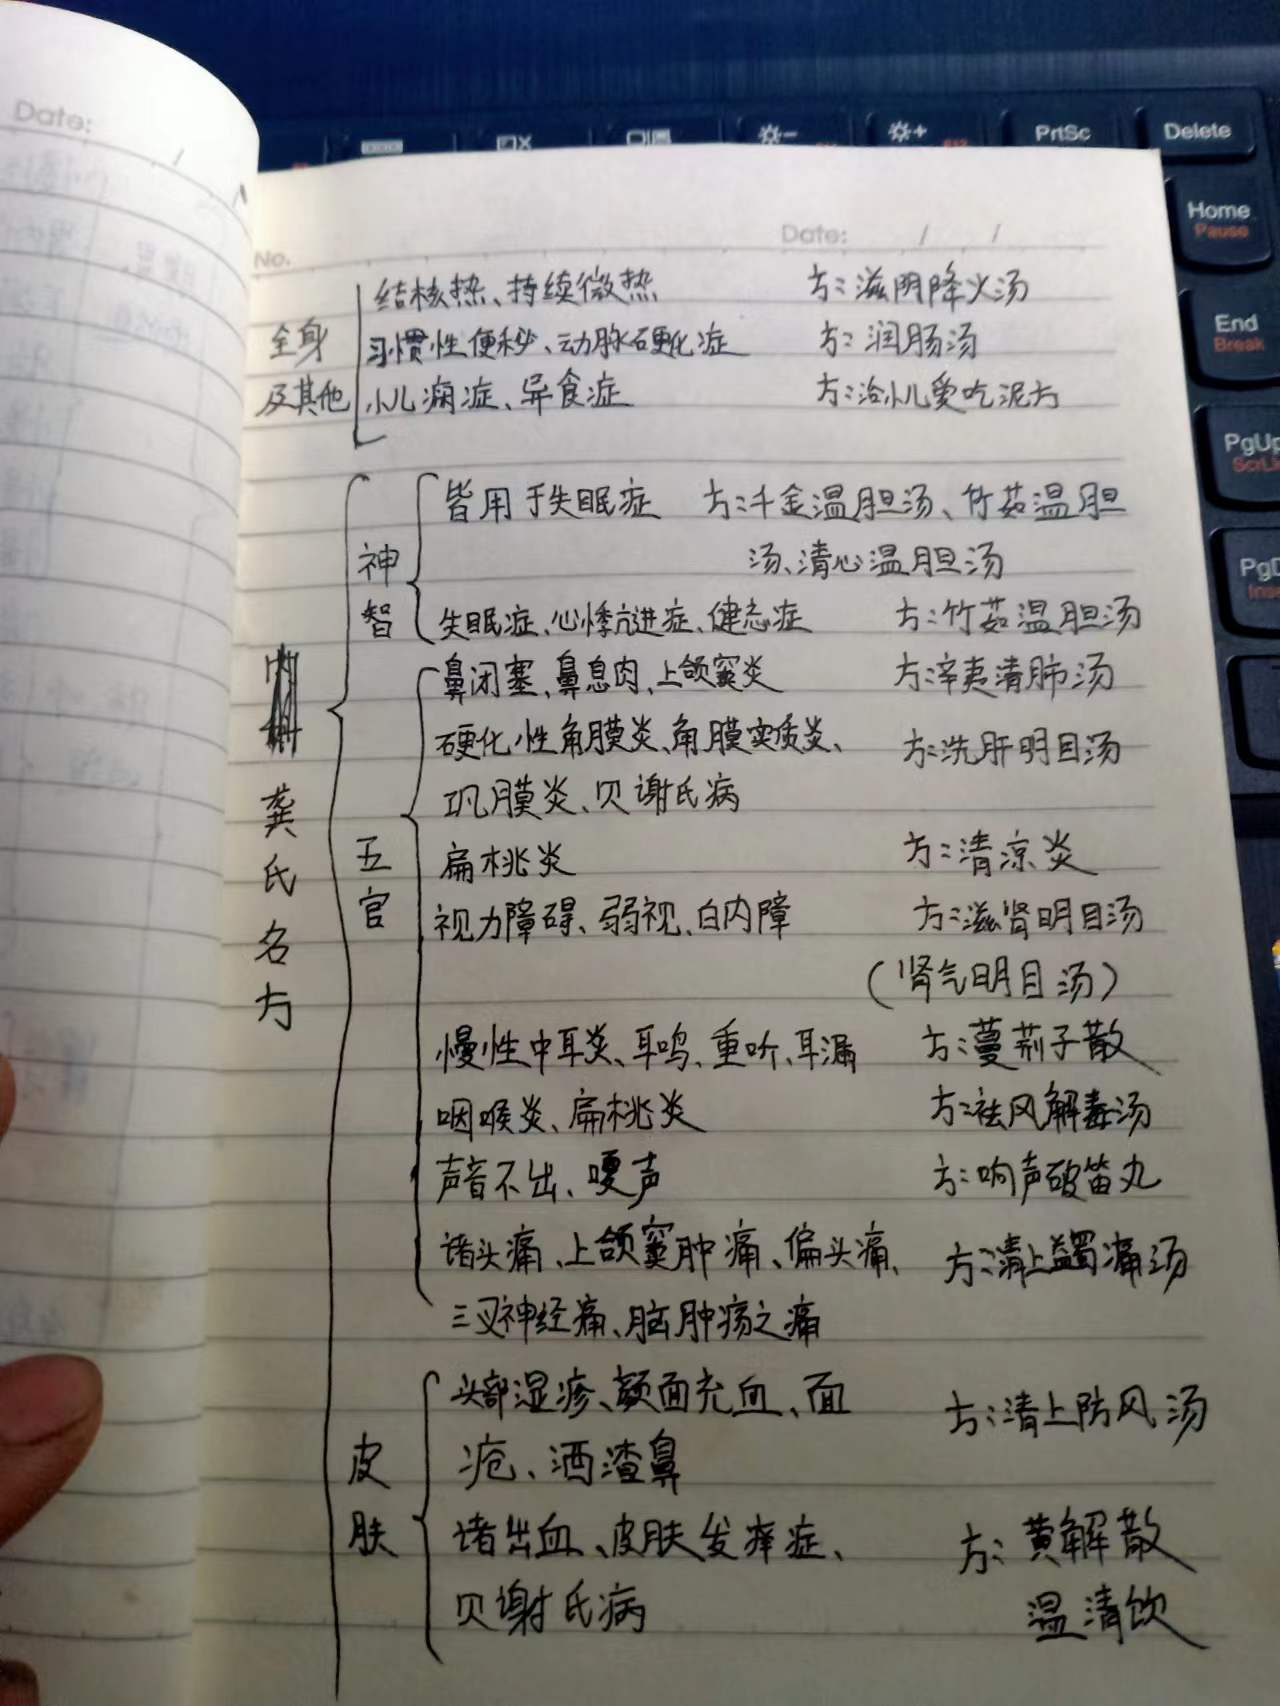 Date:
PrtSc
Delete
Home
Pause
End
Break
PgUp
PgD
No.
Date: / /
全身
及其他
结核热、持续微热 方:滋阴降火汤
习惯性便秘、动脉硬化症 方:润肠汤
小儿痫症、异食症 方:治小儿爱吃泥方
龚氏名方
神智
皆用于失眠症 方:千金温胆汤、竹茹温胆
汤、清心温胆汤
失眠症、心悸亢进症、健忘症 方:竹茹温胆汤
五官
鼻闭塞、鼻息肉、上颌窦炎 方:辛夷清肺汤
硬化性角膜炎、角膜实质炎、 方:洗肝明目汤
巩膜炎、贝谢氏病
扁桃炎 方:清凉炎
视力障碍、弱视、白内障 方:滋肾明目汤
(肾气明目汤)
慢性中耳炎、耳鸣、重听、耳漏 方:蔓荊子散
咽喉炎、扁桃炎 方:祛风解毒汤
声音不出、嗄声 方:响声破笛丸
诸头痛、上颌窦肿痛、偏头痛、 方:清上蠲痛汤
三叉神经痛、脑肿疡之痛
皮肤
头部湿疹、颜面充血、面 方:清上防风汤
疮、洒渣鼻
诸出血、皮肤发痒症、 方:黄解散
贝谢氏病 温清饮